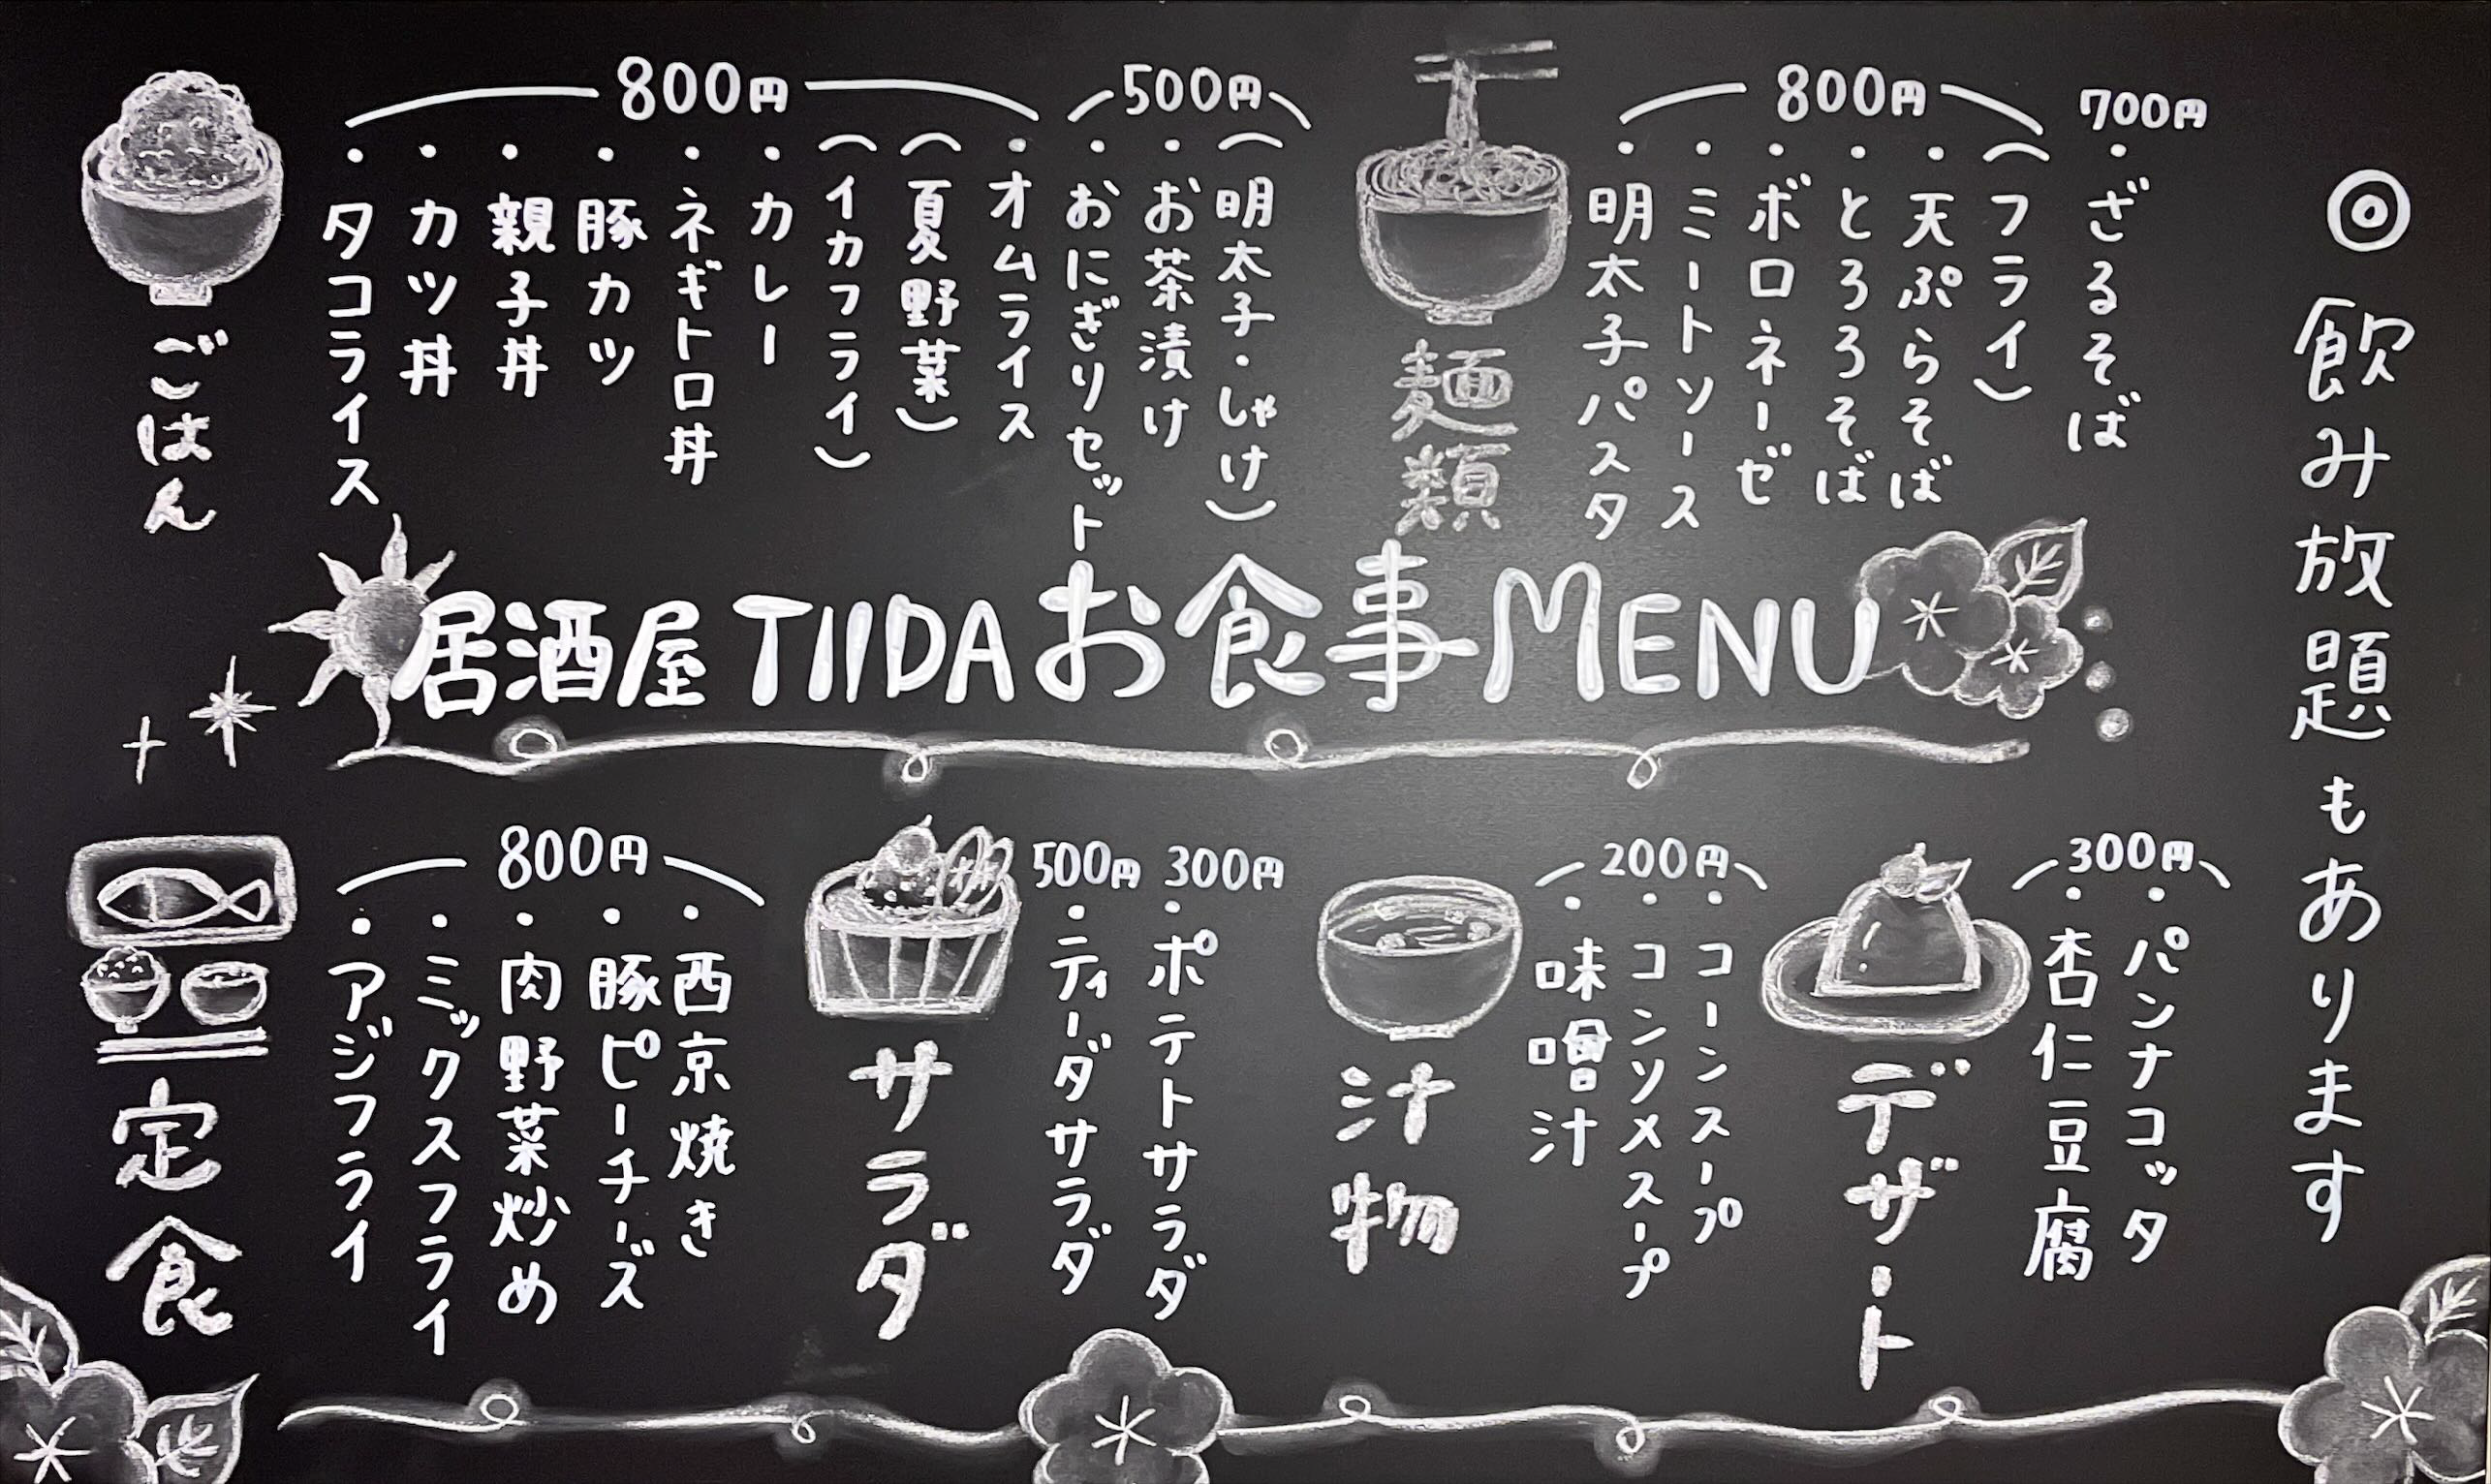 ごはん
800円
・タコライス
・カツ丼
・親子丼
・豚カツ
・ネギトロ丼
・カレー
(イカフライ)
(夏野菜)
・オムライス
500円
・おにぎりセット
・お茶漬け
(明太子・しゃけ)
麺類
800円
・明太子パスタ
・ミートソース
・ボロネーゼ
・とろろそば
・天ぷらそば
(フライ)
700円
・ざるそば
◎飲み放題もあります
居酒屋 TIIDA お食事 MENU
定食
800円
・アジフライ
・ミックスフライ
・肉野菜炒め
・豚ピーチーズ
・西京焼き
サラダ
500円
・ティーダサラダ
300円
・ポテトサラダ
汁物
200円
・味噌汁
・コンソメスープ
・コーンスープ
デザート
300円
・杏仁豆腐
・パンナコッタ